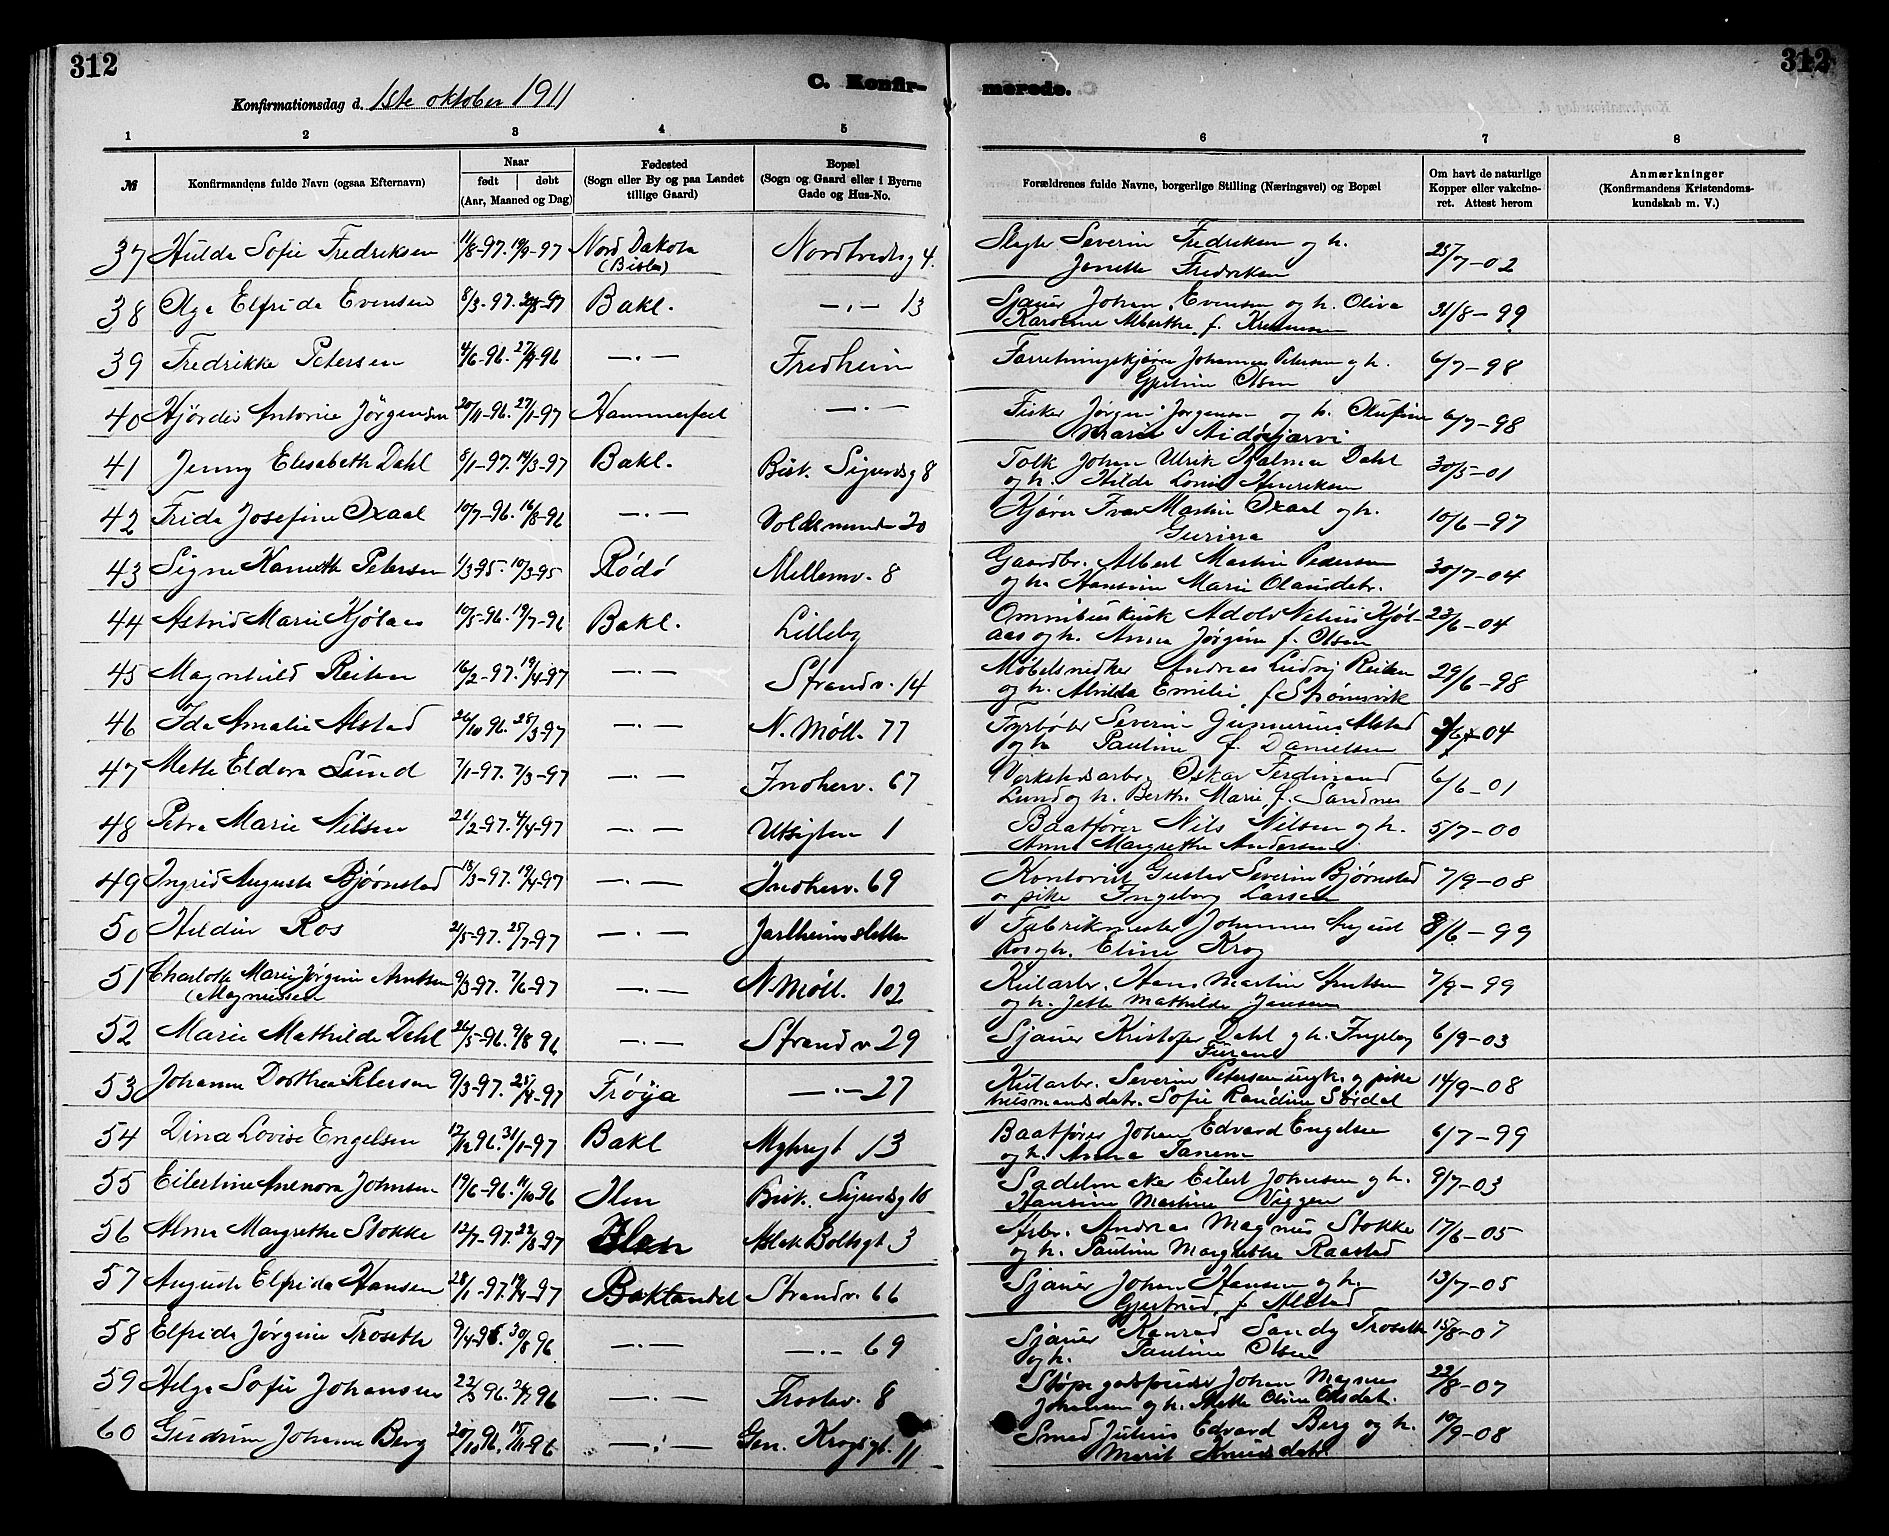 312
312
Konfirmationsdag d. 1ste oktober 1911
C. Konfir-
merede.
1 2 3 4 5 6 7 8
№
Konfirmandens fulde Navn (ogsaa Efternavn)
Naar
født | døbt
(Aar, Maaned og Dag)
Fødested
(Sogn eller By og paa Landet
tillige Gaard)
Bopæl
(Sogn og Gaard eller i Byerne
Gade og Hus-No.
Forældrenes fulde Navne, borgerlige Stilling (Næringsvei) og Bopæl
Om havt de naturlige
Kopper eller vakcine-
ret. Attest herom
Anmærkninger
(Konfirmandens Kristendoms-
kundskab m. V.)
37 Hulda Sofie Fredriksen 11/8-97. 19/9-97 Nord Dakota Nordtvedtsg 4. Slagter Severin Fredriksen og h. 25/7-02
Jonette Fredriksen
38 Olga Elfrida Evensen 8/3-97. -97 Bakl. —·— 13 Sjauer Johan Evensen og h. Oliva 31/8-99
Karoline Alberthe f.
39 Fredrikke Petersen 4/6-96. 27/9-96 —·— Fredheim Forretningskjører Johannes Petersen og h. 6/7-98
Gjertine Olsen
40 Hjördis Antonie Jörgensen 20/11-96. 27/1-97 Hammerfest —·— Fisker Jørgen Jørgensen og h. Olufine 6/7-98
Marie
41 Jenny Elisabeth Dahl 8/1-97. 14/3-97 Bakl. Bisk. Sigurdsg 8 Tolk Johan Ulrik Hjalmar Dahl 30/5-01
og h. Hilda Lovise Henriksen
42 Frida Josefine Oxaal 10/7-96. 16/8-96 —·— Voldsminde 20 Kjører Ivar Martin Oxaal og h. 10/6-97
Gurina
43 Signe Petersen 1/3-95. 10/3-95 Rödö Mellemv. 8 Gaardbr. Albert Martin Pedersen 30/7-04
og h. Hansine Marie Olausdatr.
44 Astrid Marie Kjölaas 10/5-96. 19/7-96 Bakl. Lilleby Omnibuskusk Adolv Nelius Kjöl- 23/6-04
aas og h. Anna Jørgine f. Olsen
45 Magnhild Reiten 16/2-97. 19/4-97 —·— Strandv. 14 Møbelsnedker Andreas Ludvig Reiten 29/6-98
og h. Alvilda Emilie f. Strømsvik
46 Ida Amalie Alstad 26/10 96. 28/3-97 —·— N. Möll. 77 Fyrbøder Severin Gunnerius Alstad -04
og h. Pauline f. Danielsen
47 Mette Eldora Lund 7/1-97. 7/3-97 —·— Indherv. 67 Verkstedsarbr. Oskar Ferdinand 6/6-01
Lund og h. Berthe Marie f. Sandnes
48 Petra Marie Nilsen 21/2-97. 4/4-97 —·— Utsigten 1 Baatfører Nils Nilsen og h. 5/7-00
Anna Margrethe Andersen
49 Ingrid Augusta Bjørnstad 18/3-97. 19/4-97 —·— Indherv. 69 Kontorist Gustav Severin Bjørnstad 7/9-08
o. pike Ingeborg Larsen
50 Hildur Ros 21/5-97. 25/7-97 —·— Jarlheimsletten Fabrikmester Johannes August 8/6-99
Ros og h. Eline Krog
51 Charlotte Marie Jørgine Arntsen 9/3-97. 7/6-97 —·— N. Möll. 102 Kularbr. Hans Martin Arntsen 7/9-99
(Magnussen og h. Jette Mathilde Jensen
52 Marie Mathilde Dahl 26/5-96. 9/8 96 —·— Strandv 29 Sjauer Kristofer Dahl og h. Ingeborg 6/9-03
Furene
53 Johanne Dorthea Petersen 9/3-97. 25/4-97 Fröya —·— 27 Kularbr. Severin Petersen ungk. og pike 14/9-08
husmandsdatr. Sofie Randine Sördal
54 Dina Lovise Engelsen 12/12 96. 31/1-97 Bakl Myhregt 13 Baatfører Johan Edvard Engelsen 6/7-99
og h. Anna Tanem
55 Eilertine Anenora Johnsen 19/6-96. 11/10-96 Ilen Bisk. Sigurdsg 10 Sadelmaker Eilert Johnsen og h. 9/7-03
Hansine Martine Viggen
56 Alma Margrethe Stokke 12/7-97. 22/8-97 Ilen Aslak Boltsgt 3 Arbr. Andreas Magnus Stokke 17/6-05
og h. Pauline Margrethe Raastad
57 Augusta Elfrida Hansen 28/1-97. 19/4-97 Baklandet Strandv. 66 Sjauer Johan Hansen og h. 13/7-05
Gjertrud, f. Alstad
58 Elfrida Jørgine Troseth 9/4-96. 30/8 96 —·— —·— 69 Sjauer Konrad Sandy Troseth 15/8-07
og h. Pauline Olsen
59 Helga Sofie Johansen 96. 96 —·— Frostav. 8 Støpegodspudser Johan Magnus 22/8-07
Johansen og h. Mette Oline Olsdatr.
60 Gudrun Johanne Berg 20/10 96. 15/11-96 —·— Gen. Krogsgt. 11 Smed Julius Edvard Berg og h. 10/9-08
Marit Knudsdatr.